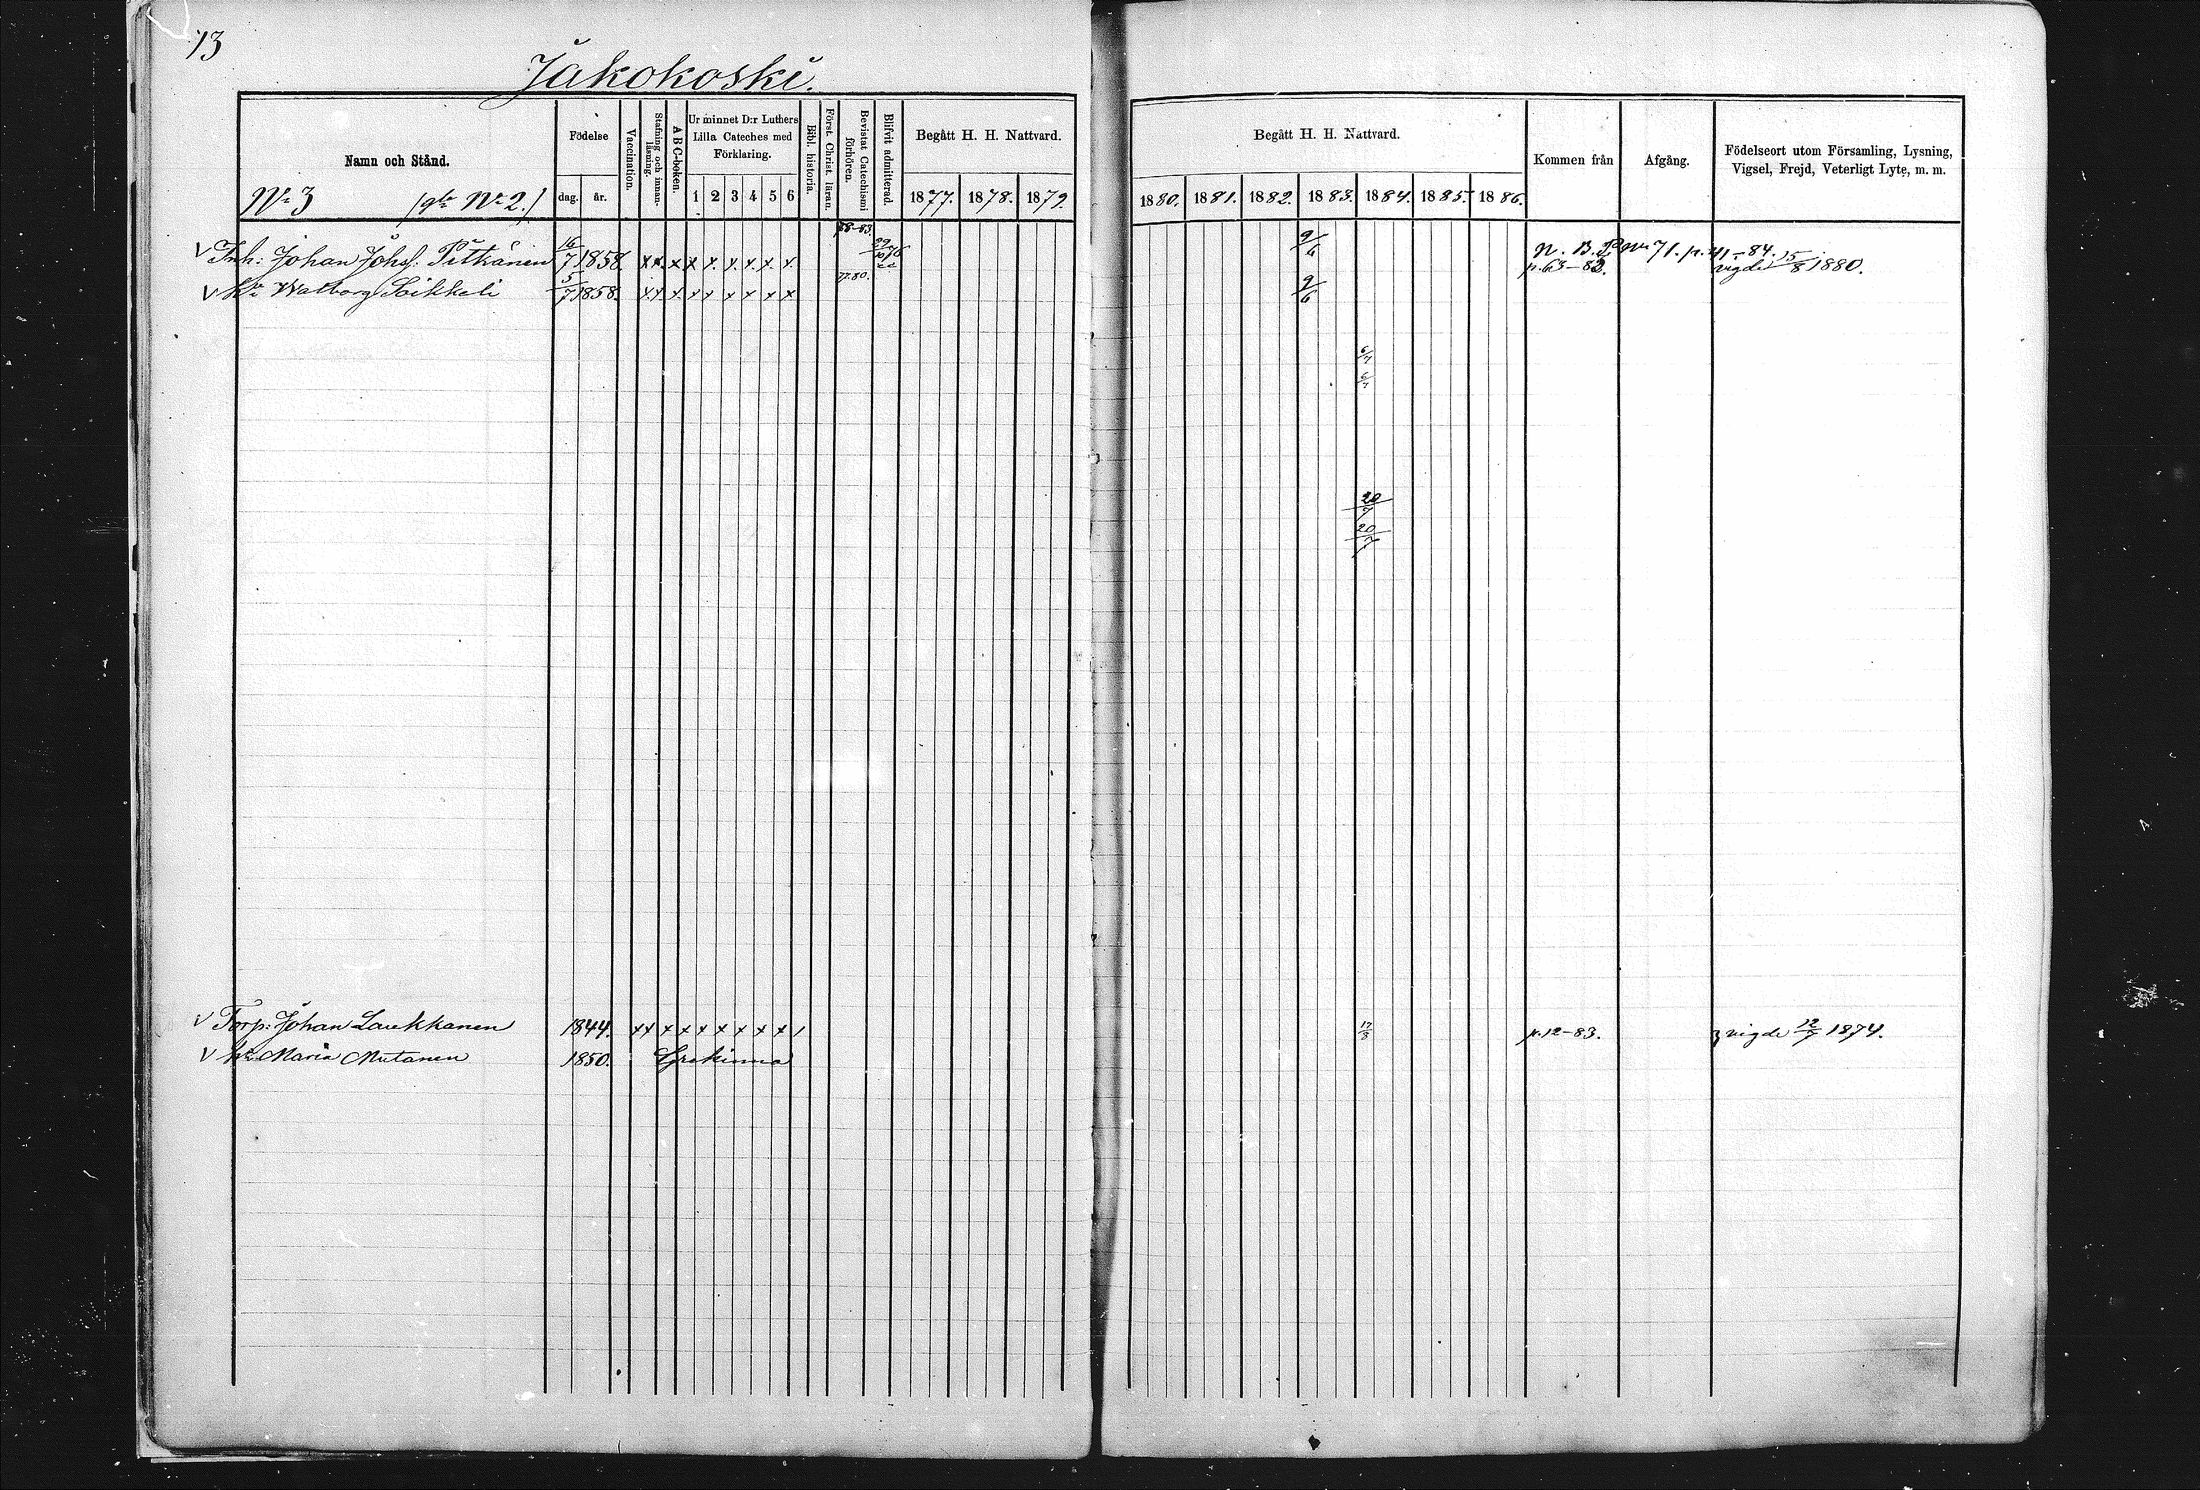 13
Jakokoski.
Namn och Stånd.
Födelse
Vaccination.
Stafning och innanläsning.
A B C-boken.
Ur minnet D:r Luthers Lilla Cateches med Förklaring.
Bibl. historia.
Först. Christ. läran.
Bevistat Catechismi förhören.
Blifvit admitterad.
Begått H. H. Nattvard.
Begått H. H. Nattvard.
Kommen från
Afgång.
Födelseort utom Församling, Lysning, Vigsel, Frejd, Veterligt Lyte, m. m.
No 3
No 2.
dag. år.
1 2 3 4 5 6
1877. 1878. 1879.
1880. 1881. 1882. 1883. 1884. 1885. 1886.
v Inh: Johan Johs. Pitkänen 16/7 1858. x x x x x x x x x 9/6 N. B. No 71. p. 41-84.
p. 63-83. vigde 15/8 1880.
77.80.
v hu Walborg Soikkeli 5/7 1858. x x x x x x x x x 9/6
6/7
6/7
20/7
20/7
v Torp: Johan Laukkanen 1844. x x x x x x x x x / 17/8 p. 12-83. vigde 12/7 1874.
v hu Maria Mutanen 1850. Grekinna